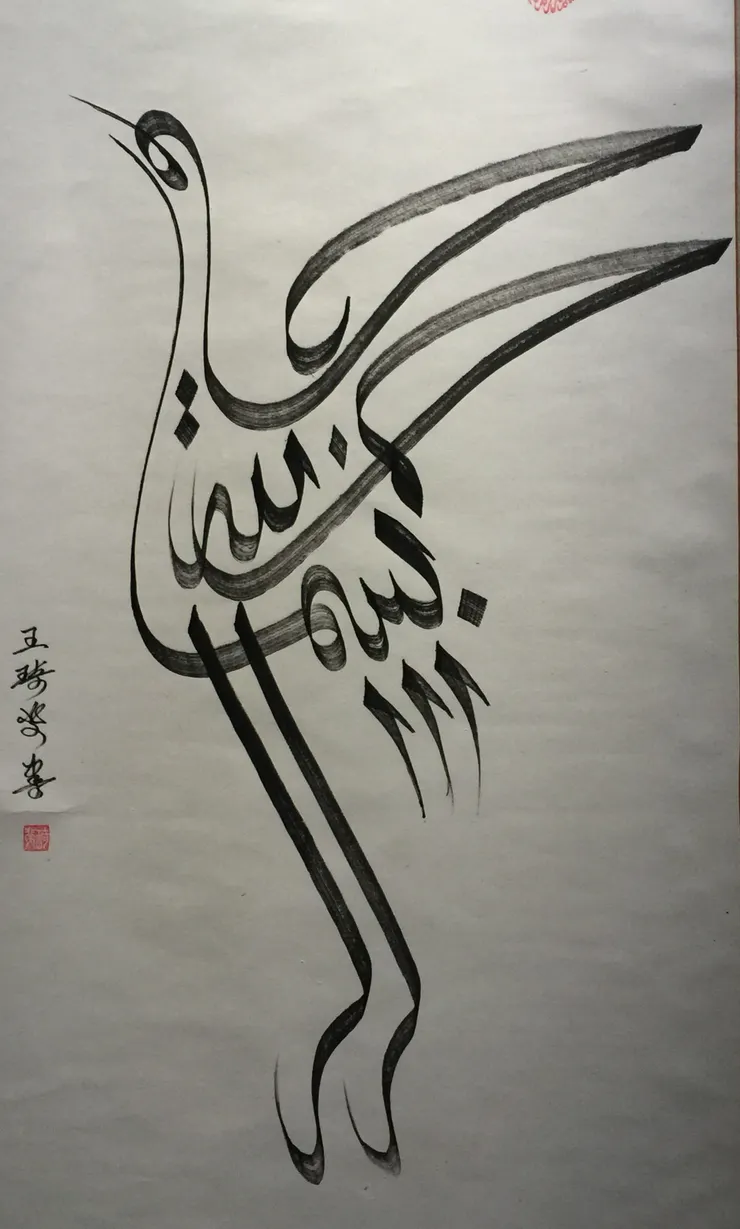 بسم الله الرحمن الرحيم
王琦